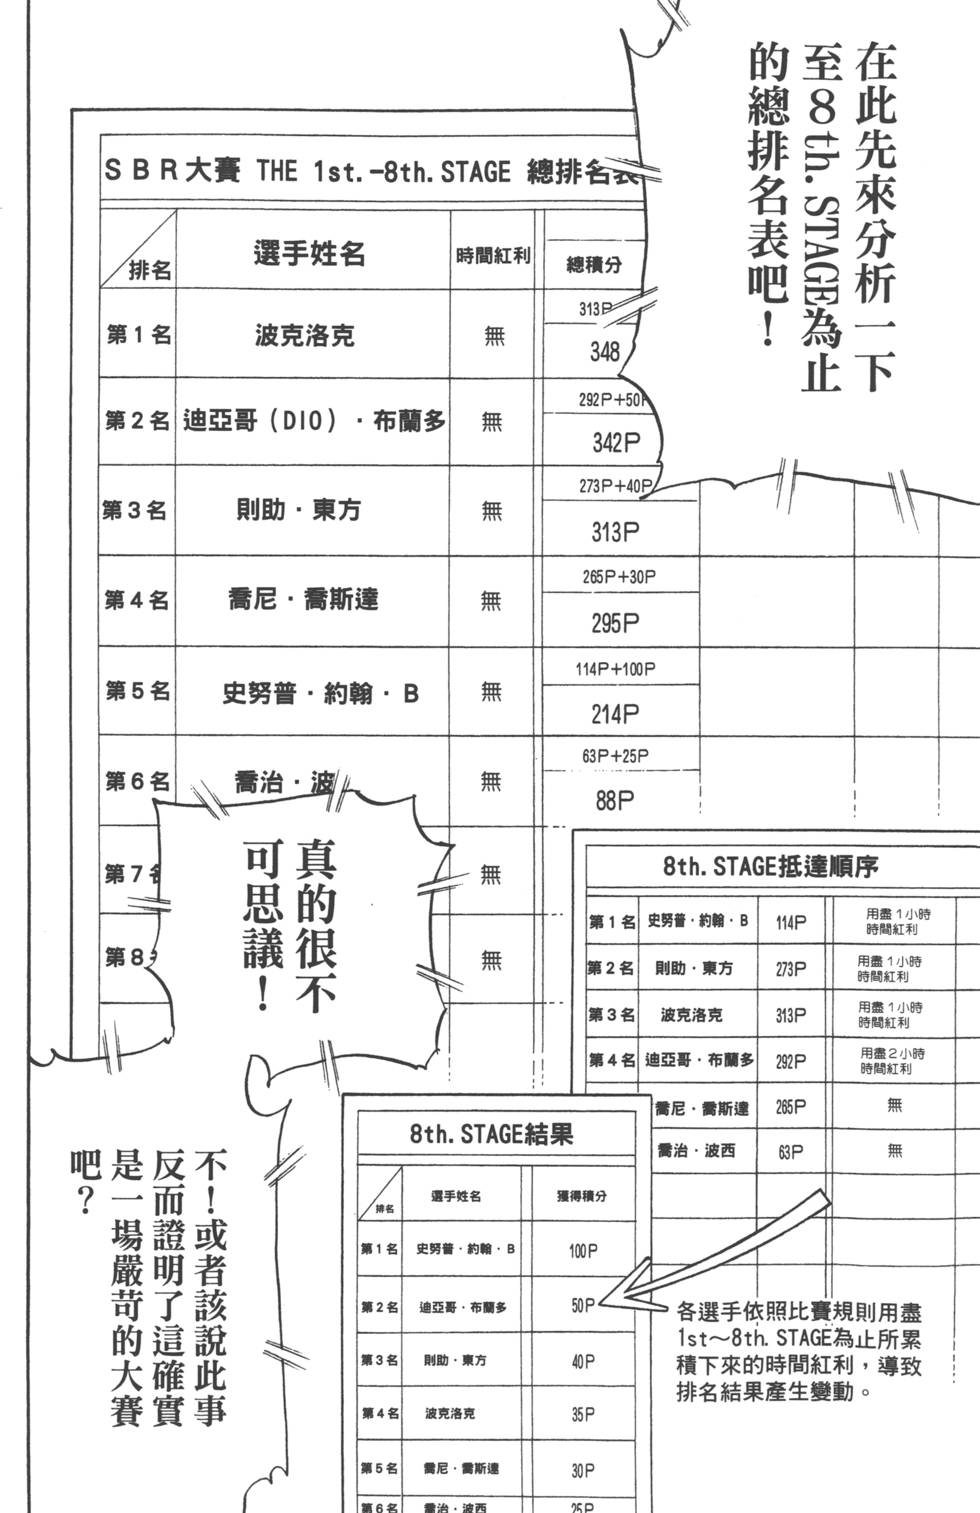 在此先來分析一下
至8th.STAGE為止
的總排名表吧！
SBR大賽 THE 1st.-8th.STAGE 總排名表
排名 選手姓名 時間紅利 總積分
313P
第1名 波克洛克 無 348
292P+50P
第2名 迪亞哥（DIO）・布蘭多 無 342P
273P+40P
第3名 則助・東方 無 313P
265P+30P
第4名 喬尼・喬斯達 無 295P
114P+100P
第5名 史努普・約翰・B 無 214P
63P+25P
第6名 喬治・波 無 88P
第7名 無
第8 無
真的很不
可思議！
8th.STAGE抵達順序
第1名 史努普・約翰・B 114P 用盡1小時
時間紅利
第2名 則助・東方 273P 用盡1小時
時間紅利
第3名 波克洛克 313P 用盡1小時
時間紅利
第4名 迪亞哥・布蘭多 292P 用盡2小時
時間紅利
喬尼・喬斯達 265P 無
喬治・波西 63P 無
8th.STAGE結果
排名 選手姓名 獲得積分
第1名 史努普・約翰・B 100P
第2名 迪亞哥・布蘭多 50P
第3名 則助・東方 40P
第4名 波克洛克 35P
第5名 喬尼・喬斯達 30P
第6名 喬治・波西 25P
各選手依照比賽規則用盡
1st～8th.STAGE為止所累
積下來的時間紅利，導致
排名結果產生變動。
不！或者該說此事
反而證明了這確實
是一場嚴苛的大賽
吧？